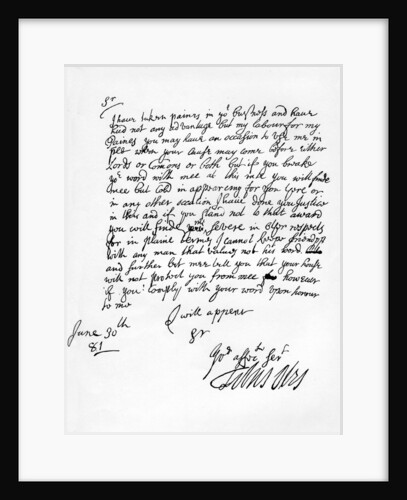 Sr
I have taken paines in yor business and have
had not any advantage but my labour for my
Paines you may have an occasion to use me in
when your Cause may come before either
Lords or Comons or both but if you breake
yor word with mee at this rate you will finde
mee but Cold in appearing for you here or
in any other occation I have done you Justice
in this and if you stand not to that award
you will finde mee severe in other respects
for in plaine termes I cannot keepe friendship
with any man that values not his word
and further let mee tell you that your house
will not protect you from mee however
if you Comply with your word upon honour
to me
I will appear
June 30th
81
Sr
Yor affec Ser